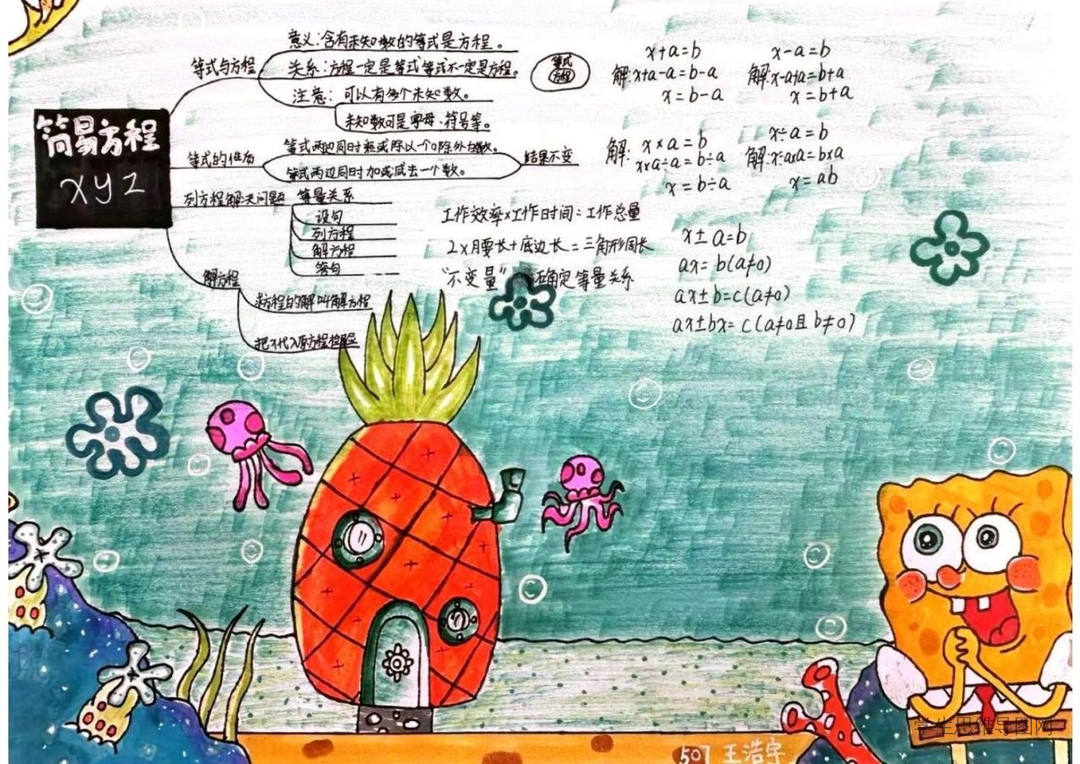 简易方程
xyz
等式与方程
意义:含有未知数的等式是方程。
关系:方程一定是等式,等式不一定是方程。
注意:可以有多个未知数。
未知数可是字母、符号等。
等式
方程
等式的性质
等式两边同时乘或除以一个0除外的数。
等式两边同时加或减去一个数。
结果不变
列方程解决问题
等量关系
设句
列方程
解方程
答句
解方程
求方程的解叫解方程
把x代入原方程检验
x+a=b
解:x+a-a=b-a
x=b-a
x-a=b
解:x-a+a=b+a
x=b+a
x×a=b
解:x×a÷a=b÷a
x=b÷a
x÷a=b
解:x÷a×a=b×a
x=ab
工作效率×工作时间=工作总量
2×月要长+底边长=三角形周长
"不变量" 确定等量关系
x±a=b
ax=b(a≠0)
ax±b=c(a≠0)
ax±bx=c(a≠0且b≠0)
507 王浩宇
学生思维导图网